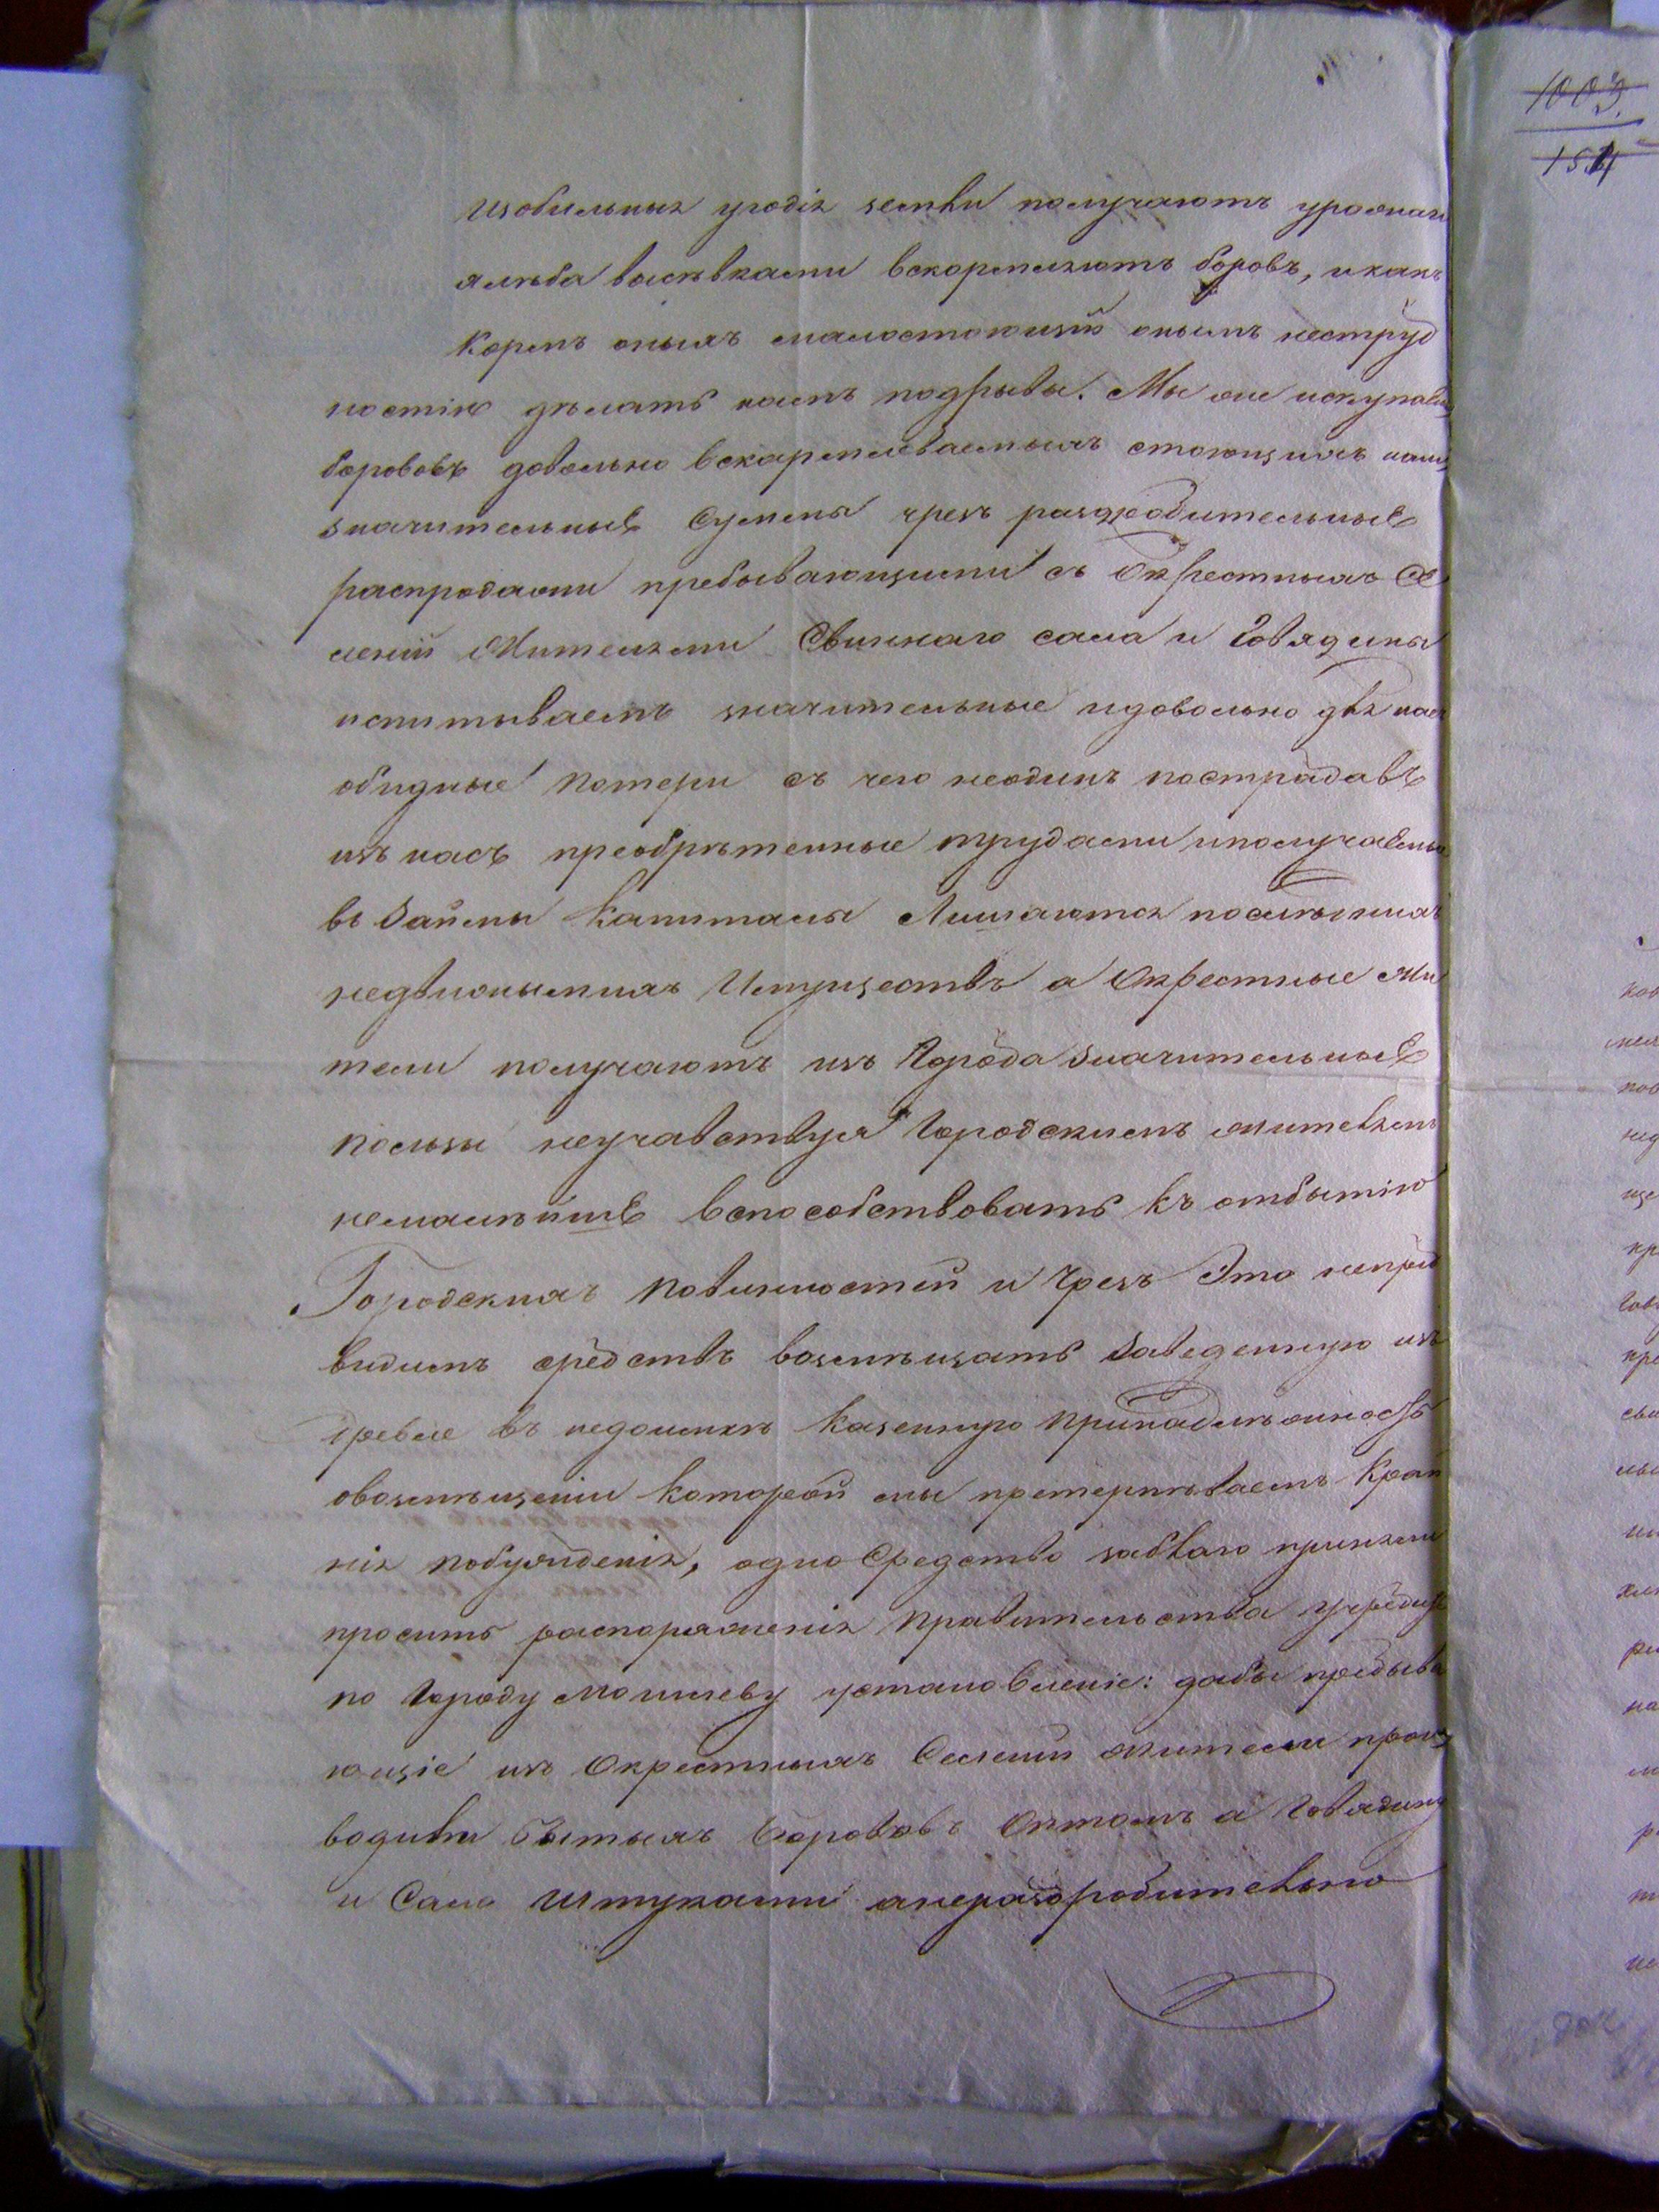 изобильныя угодія земли получаютъ урожаи
хлѣба высѣвками вскормляютъ боровъ, и какъ
кормъ оныхъ малостоющій онымъ неструд
ностію дѣлать намъ подрывы. Мы же искупаемы
борововъ довольно вскармлеваемыхъ стоющихъ намъ
значительные Суммы чрезъ раздробительные
распродажи пребывающими съ Окрестныхъ Се
леній Жителями Свиннаго сала и Говядины
испытываемъ значительные идовольно для насъ
обидные потери съ чего неодинъ пострадавъ
изъ насъ преобрѣтенные трудами иполучаемы
въ Займы капиталы Лишаются послѣднихъ
недвижимыхъ Имуществъ а Окрестные жи
тели получаютъ изъ Города Значительные
пользы неучавствуя Городскимъ жителямъ
немалѣйше вспособствовать къ отбытію
Городскихъ повинностей и чрезъ Это непред
видимъ средствъ возмѣщать Заведенную из
древле въ недоимкѣ казенную принадлѣжность
овозмѣщеніи которой мы претерпѣваемъ край
нія побужденія, одно Средство заблаго приняли
просить распоряженія правительства учредить
по Городу Могилеву установленіе: дабы пребыва
ющіе изъ Окрестныхъ Селеній жители произ
водили битыхъ Борововъ Оптомъ а Говядину
и Сало штуками анераздробительно
1003